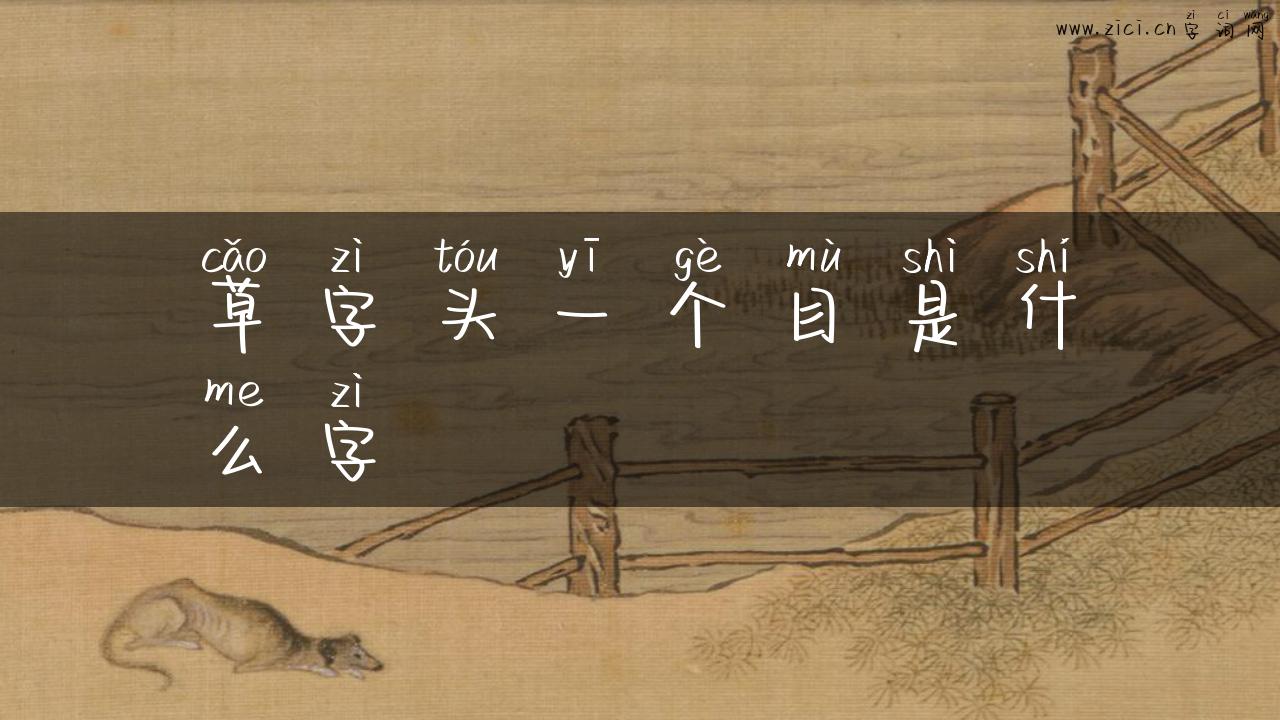 zì cí wǎng
www.zici.cn 字词网
cǎo zì tóu yī gè mù shì shí
草字头一个目是什
me zì
么字